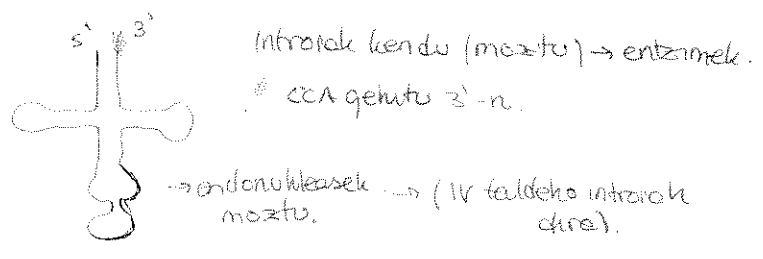 5' 3'
Introiak kendu (moztu) → entzimek.
* CCA gehitu 3'-n.
→ endonukleasek → (IV taldeko introiak
moztu. dira).